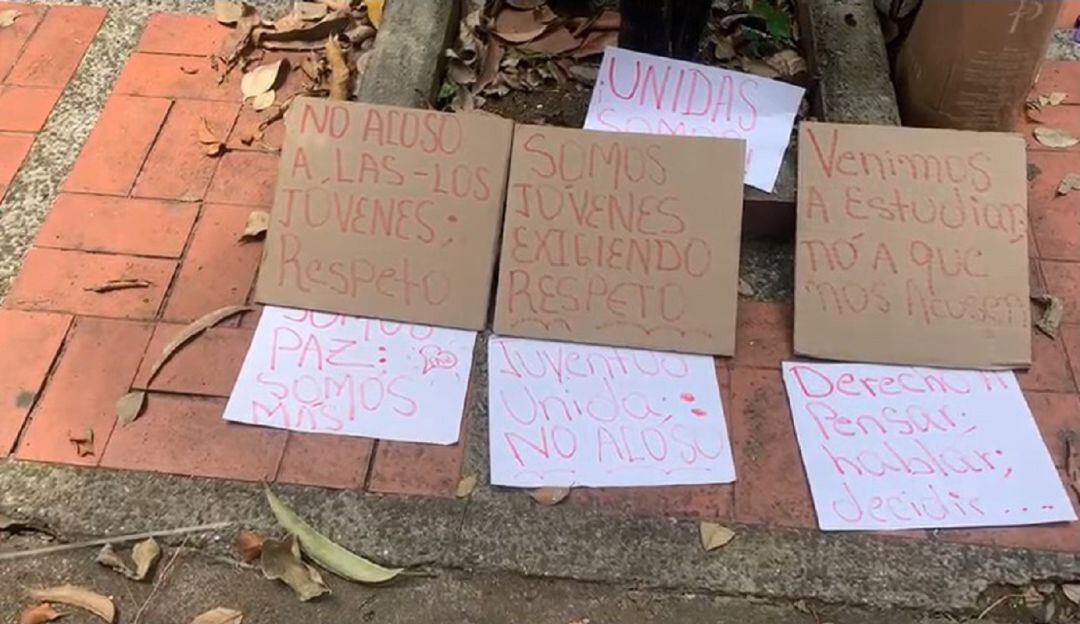 UNIDAS
SOMOS
NO ACOSO
A LAS-LOS
JÓVENES;
Respeto
SOMOS
JÓVENES
EXIGIENDO
RESPETO
Venimos
A Estudiar;
nó A que
nos Acosen
SOMOS
PAZ:
SOMOS
MÁS
Juventud
Unida;
NO ACOSO
Derecho A
Pensar;
hablar;
decidir...